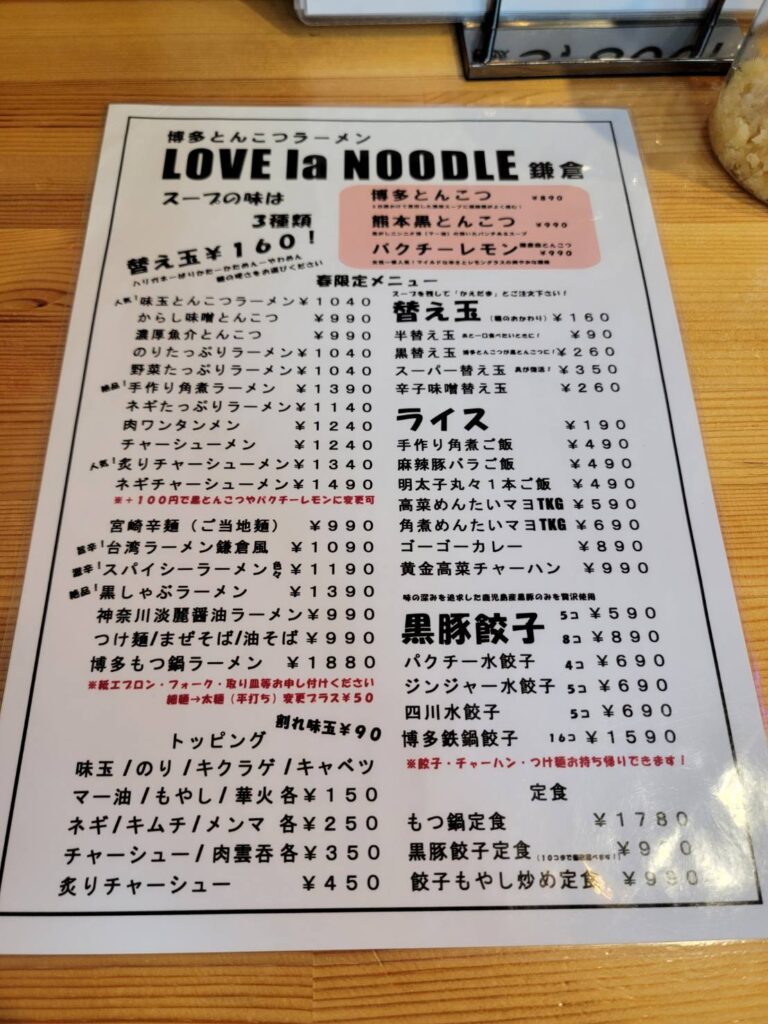 博多とんこつラーメン
LOVE la NOODLE 鎌倉
スープの味は
3種類
替え玉¥160!
ハリガネーばりかたーかためんーやわめん
麺の硬さをお選びください
博多とんこつ ¥890
熊本黒とんこつ ¥990
パクチーレモン ¥990
春限定メニュー
人気!味玉とんこつラーメン¥1040
からし味噌とんこつ ¥990
濃厚魚介とんこつ ¥990
のりたっぷりラーメン¥1040
野菜たっぷりラーメン¥1040
絶品!手作り角煮ラーメン ¥1390
ネギたっぷりラーメン ¥1140
肉ワンタンメン ¥1240
チャーシューメン ¥1240
人気!炙りチャーシューメン¥1340
ネギチャーシューメン¥1490
※+100円で黒とんこつやパクチーレモンに変更可
宮崎辛麺(ご当地麺) ¥990
旨辛!台湾ラーメン鎌倉風 ¥1090
激辛!スパイシーラーメン色々¥1190
絶品!黒しゃぶラーメン ¥1390
神奈川淡麗醤油ラーメン¥990
つけ麺/まぜそば/油そば¥990
博多もつ鍋ラーメン ¥1880
※紙エプロン・フォーク・取り皿等お申し付けください
細麺→太麺(平打ち)変更プラス¥50
割れ味玉¥90
トッピング
味玉/のり/キクラゲ/キャベツ
マー油/もやし/華火 各¥150
ネギ/キムチ/メンマ 各¥250
チャーシュー/肉雲呑 各¥350
炙りチャーシュー ¥450
スープを残して「かえだま」とご注文下さい!
替え玉(麺のおかわり) ¥160
半替え玉 あと一口食べたいときに! ¥90
黒替え玉 博多とんこつが黒とんこつに!¥260
スーパー替え玉 具が復活! ¥350
辛子味噌替え玉 ¥260
ライス ¥190
手作り角煮ご飯 ¥490
麻辣豚バラご飯 ¥490
明太子丸々1本ご飯 ¥490
高菜めんたいマヨTKG ¥590
角煮めんたいマヨTKG ¥690
ゴーゴーカレー ¥890
黄金高菜チャーハン ¥990
味の深みを追求した鹿児島産黒豚のみを贅沢使用
黒豚餃子 5コ ¥590
8コ ¥890
パクチー水餃子 4コ ¥690
ジンジャー水餃子 5コ ¥690
四川水餃子 5コ ¥690
博多鉄鍋餃子 16コ ¥1590
※餃子・チャーハン・つけ麺お持ち帰りできます!
定食
もつ鍋定食 ¥1780
黒豚餃子定食
餃子もやし炒め定食 ¥990